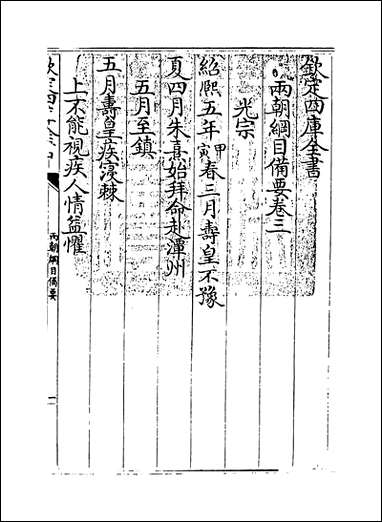 欽定四庫全書
兩朝綱目備要卷三
光宗
紹熙五年甲寅春三月壽皇不豫
夏四月朱熹始拜命赴潭州
五月至鎮
五月壽皇疾浸棘
上不能視疾人情益懼
欽定四庫全書
兩朝綱目備要
一